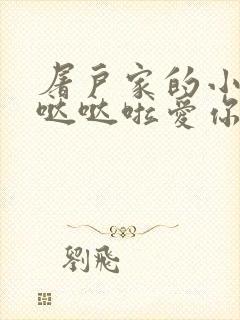 屠户家的小
哒哒啦爱你
劉飛